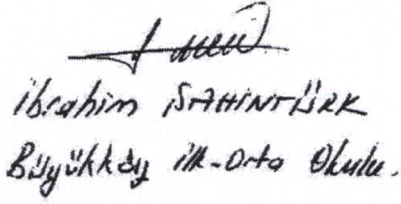 İbrahim ŞAHİNTÜRK
Büyükköy ilk-orta Okulu.